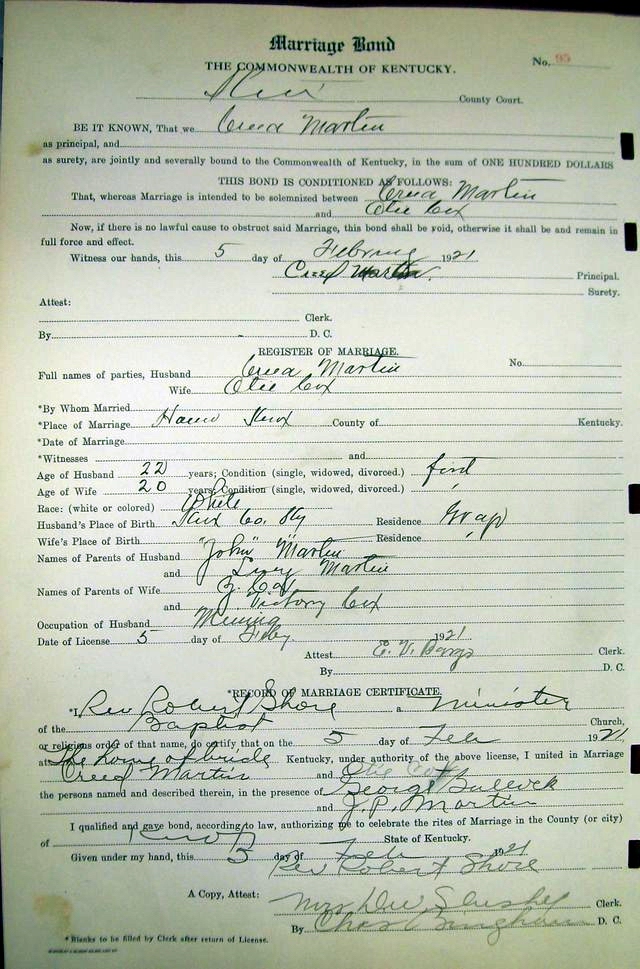 Marriage Bond
No. 95
THE COMMONWEALTH OF KENTUCKY.
County Court.
BE IT KNOWN, That we Creed Martin
as principal, and
as surety, are jointly and severally bound to the Commonwealth of Kentucky, in the sum of ONE HUNDRED DOLLARS
THIS BOND IS CONDITIONED AS FOLLOWS:
That, whereas Marriage is intended to be solemnized between Creed Martin
and Otie Cox
Now, if there is no lawful cause to obstruct said Marriage, this bond shall be void, otherwise it shall be and remain in
full force and effect.
Witness our hands, this 5 day of February 1921
Creed Martin. Principal.
Surety.
Attest:
Clerk.
By D. C.
REGISTER OF MARRIAGE.
No.
Full names of parties, Husband Creed Martin
Wife Otie Cox
*By Whom Married
*Place of Marriage Knox County of Kentucky.
*Date of Marriage
*Witnesses and
Age of Husband 22 years; Condition (single, widowed, divorced.) first
Age of Wife 20 years; Condition (single, widowed, divorced.) "
Race: (white or colored) White
Husband's Place of Birth Knox Co. Ky Residence Gray
Wife's Place of Birth " " Residence "
Names of Parents of Husband John Martin
and Martin
Names of Parents of Wife Z. Cox
and Victory Cox
Occupation of Husband Mining
Date of License 5 day of Feby 1921
Attest E. V. Clerk.
By D. C.
*RECORD OF MARRIAGE CERTIFICATE.
*I Rev Robert Shore a Minister
of the Baptist Church,
or religious order of that name, do certify that on the 5 day of Feb 1921
at The home of bride Kentucky, under authority of the above license, I united in Marriage
Creed Martin and Otie Cox
the persons named and described therein, in the presence of George Bullock
and J. P. Martin
I qualified and gave bond, according to law, authorizing me to celebrate the rites of Marriage in the County (or city)
of Knox State of Kentucky.
Given under my hand, this 5 day of Feb 1921
Rev Robert Shore
A Copy, Attest: Mrs Dee Slusher Clerk.
By Chas Bingham D. C.
*Blanks to be filled by Clerk after return of License.